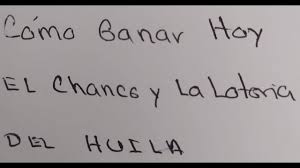 Cómo Ganar Hoy
EL Chance y La Lotoria
DEL HUILA